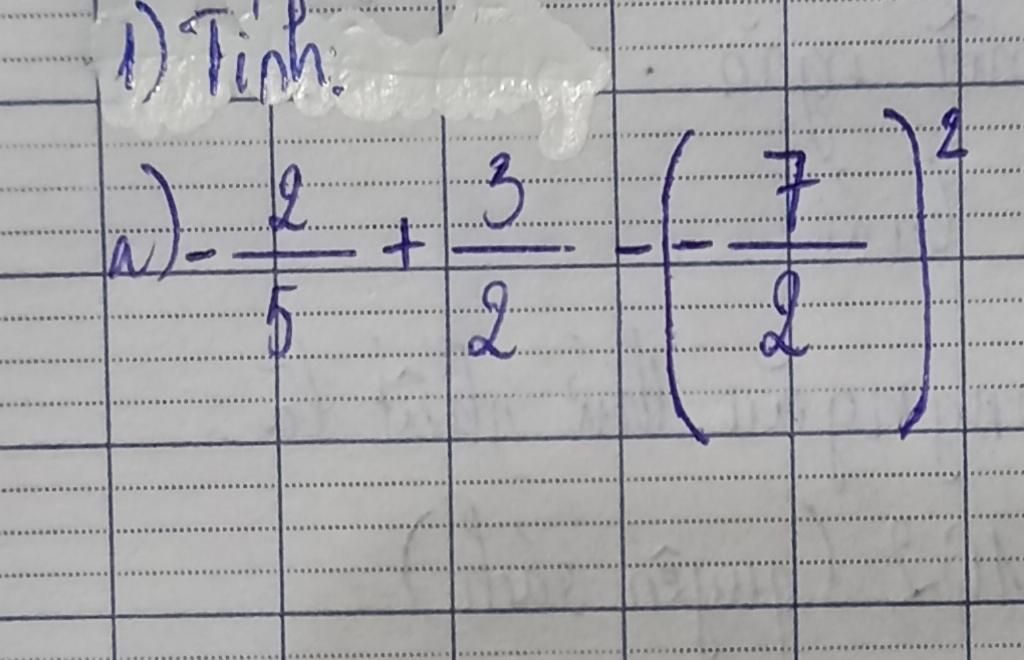 1) Tính:
a) - 2/5 + 3/2 - (- 7/2)²